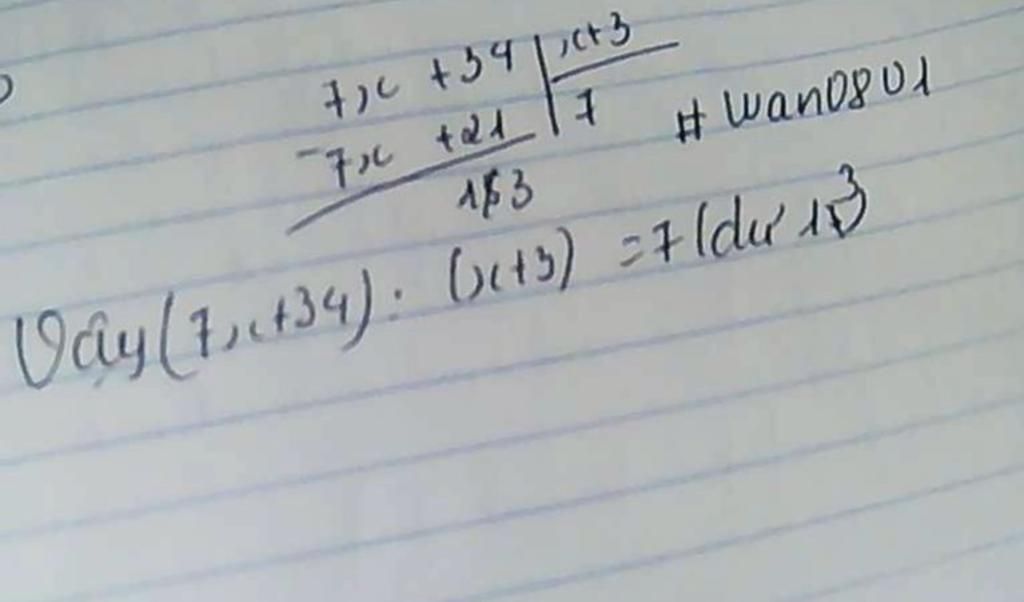 7x + 34 | x+3
- 7x + 21 | 7 # wan0801
13
Vậy (7x+34) : (x+3) = 7 (dư 13)